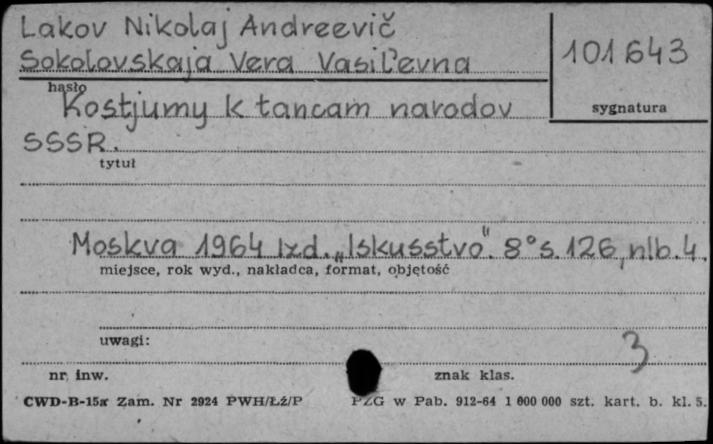 Lakov Nikolaj Andreevič
Sokolovskaja Vera Vasil'evna
101643
hasło
sygnatura
Kostjumy k tancam narodov
SSSR.
tytuł
Moskva 1964 Izd. „Iskusstvo". 8° s. 126, nlb. 4.
miejsce, rok wyd., nakładca, format, objętość
uwagi:
3
nr. inw.
znak klas.
CWD-B-15a Zam. Nr 2924 PWH/Łź/P
PZG w Pab. 912-64 1 000 000 szt. kart. b. kl. 5.